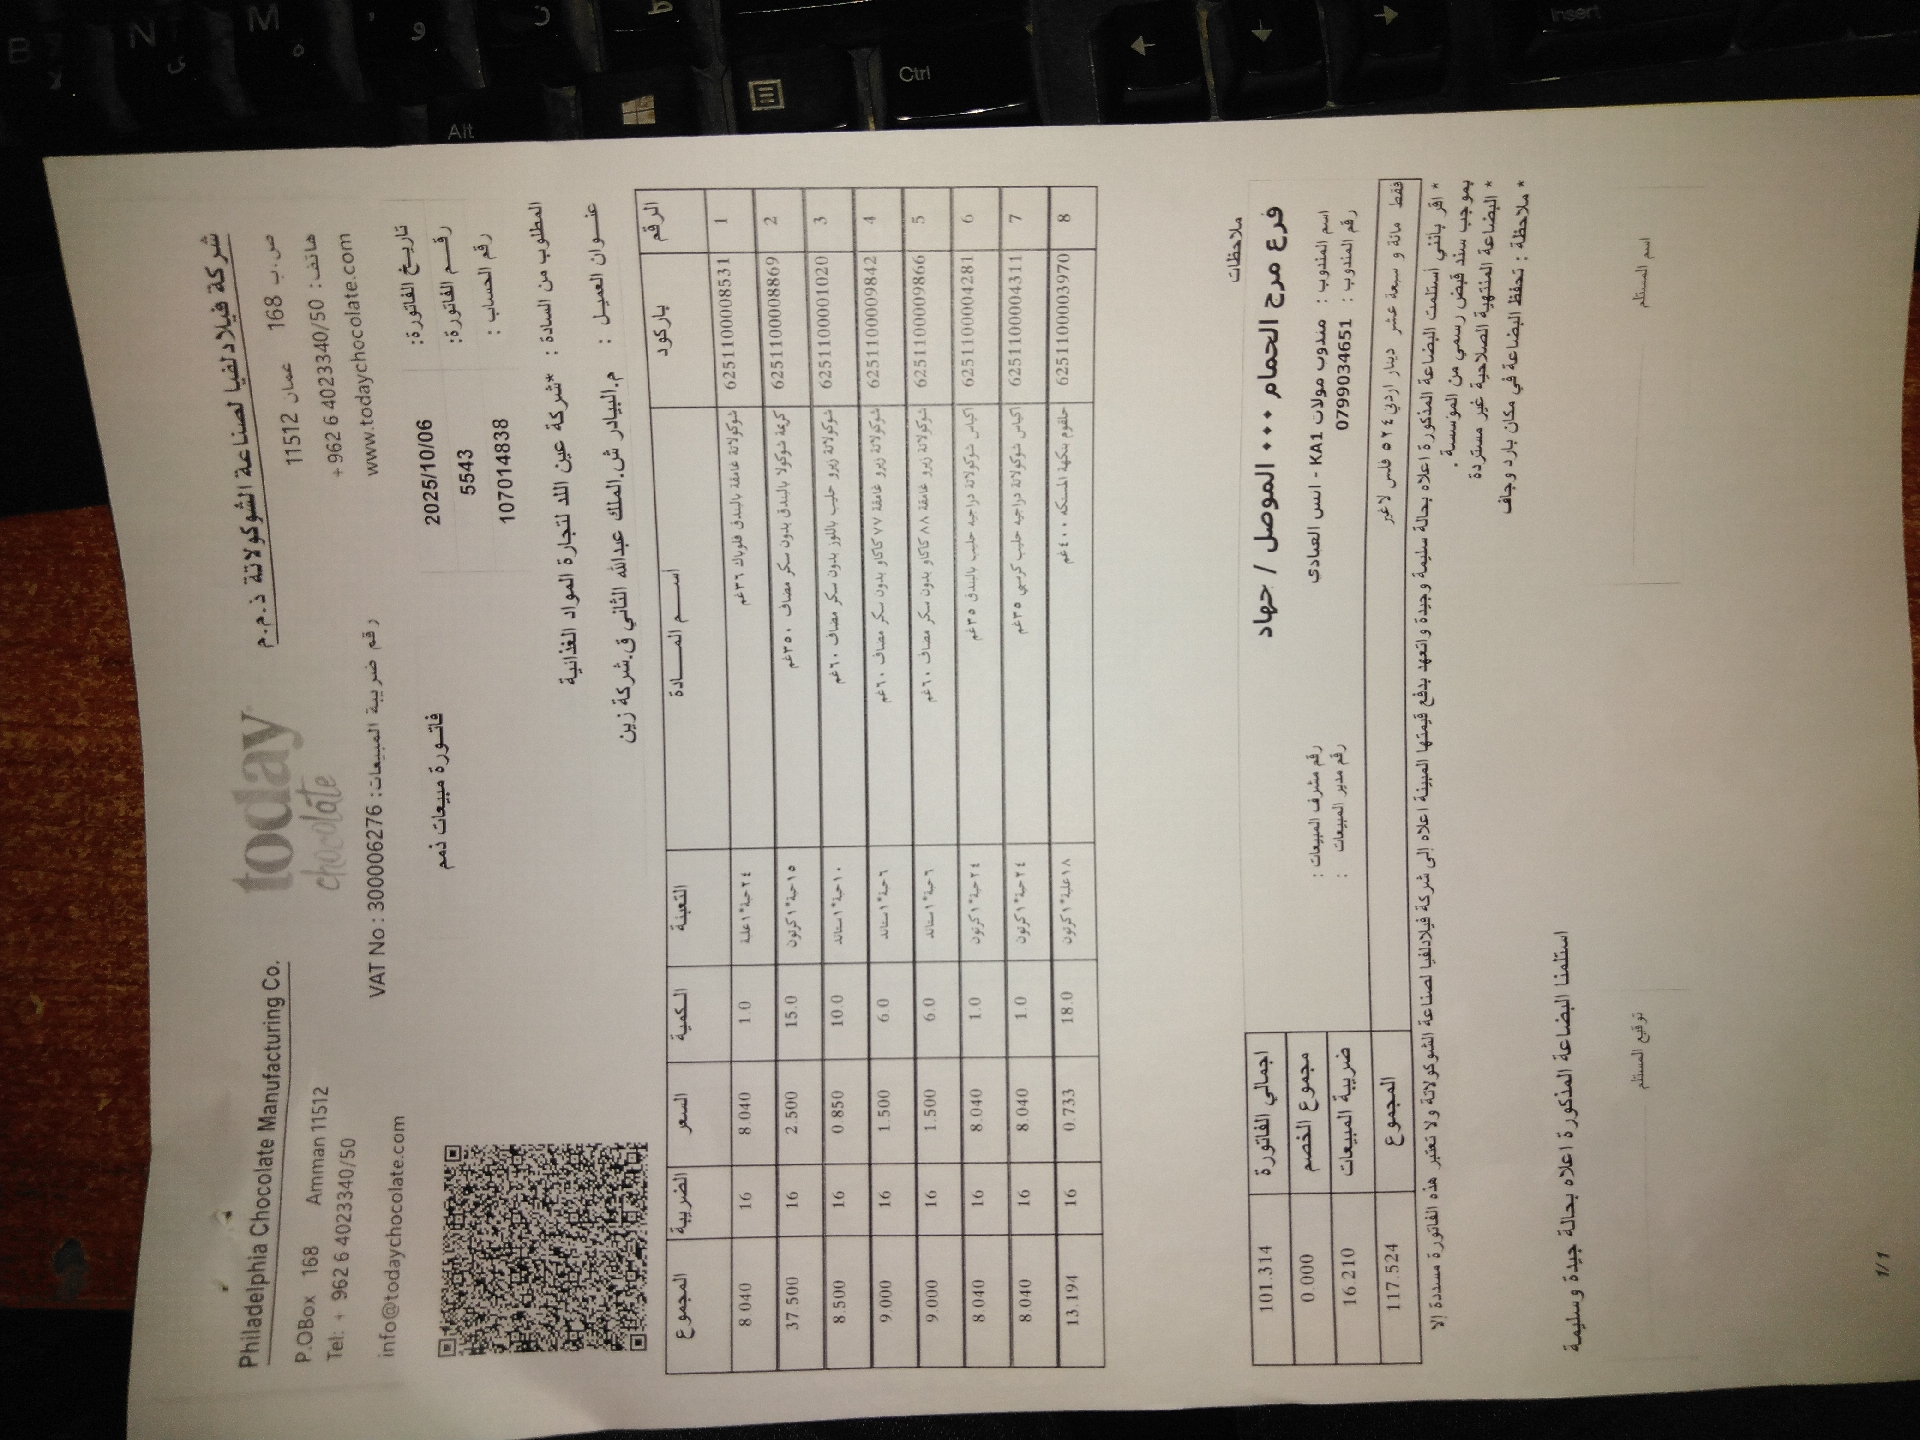 Philadelphia Chocolate Manufacturing Co.
P.OBox 168 Amman 11512
Tel: + 962 6 4023340/50
info@todaychocolate.com
today
chocolate
شركة فيلادلفيا لصناعة الشوكولاتة ذ.م.م
ص.ب 168 عمان 11512
هاتف: +962 6 4023340/50
www.todaychocolate.com
VAT No : 300006276 :رقم ضريبة المبيعات
فاتورة مبيعات ذمم
تاريخ الفاتورة: 2025/10/06
رقم الفاتورة: 5543
رقم الحساب : 107014838
المطلوب من السادة : *شركة عين اللد لتجارة المواد الغذائية
عنوان العميل : م.البيادر ش.الملك عبدالله الثاني ق.شركة زين
الرقم باركود اسم المادة التعبئة الكمية السعر الضريبة المجموع
1 6251100008531 شوكولاتة غامقة بالبندق فلوباك ٣٦غم ٢٤حبة*١علبة 1.0 8.040 16 8.040
2 6251100008869 كريمة شوكولا بالبندق بدون سكر مضاف ٣٥٠غم ١٥حبة*١كرتون 15.0 2.500 16 37.500
3 6251100001020 شوكولاتة زيرو حليب باللوز بدون سكر مضاف ٦٠غم ١٠حبة*١ستاند 10.0 0.850 16 8.500
4 6251100009842 شوكولاتة زيرو غامقة ٧٧ كاكاو بدون سكر مضاف ٦٠غم ٦حبة*١ستاند 6.0 1.500 16 9.000
5 6251100009866 شوكولاتة زيرو غامقة ٨٨ كاكاو بدون سكر مضاف ٦٠غم ٦حبة*١ستاند 6.0 1.500 16 9.000
6 6251100004281 اكياس شوكولاتة دراجيه حليب بالبندق ٣٥غم ٢٤حبة*١كرتون 1.0 8.040 16 8.040
7 6251100004311 اكياس شوكولاتة دراجيه حليب كرسبي ٣٥غم ٢٤حبة*١كرتون 1.0 8.040 16 8.040
8 6251100003970 حلقوم بنكهة المستكه ٤٠٠غم ١٨علبة*١كرتون 18.0 0.733 16 13.194
ملاحظات
فرع مرج الحمام *** الموصل / جهاد
اسم المندوب : مندوب مولات KA1 - انس العبادى
رقم المندوب : 0799034651
رقم مشرف المبيعات :
رقم مدير المبيعات :
اجمالي الفاتورة 101.314
مجموع الخصم 0.000
ضريبة المبيعات 16.210
المجموع 117.524
فقط مائة و سبعة عشر دينار اردني ٥٢٤ فلس لاغير
* اقر بأنني استلمت البضاعة المذكورة اعلاه بحالة سليمة وجيدة واتعهد بدفع قيمتها المبينة اعلاه إلى شركة فيلادلفيا لصناعة الشوكولاتة ولا تعتبر هذه الفاتورة مسددة إلا
بموجب سند قبض رسمي من المؤسسة .
* البضاعة المنتهية الصلاحية غير مستردة
* ملاحظة : تحفظ البضاعة في مكان بارد وجاف
استلمنا البضاعة المذكورة اعلاه بحالة جيدة وسليمة
اسم المستلم
توقيع المستلم
1/1
B
N
M
Alt
Ctrl
Insert